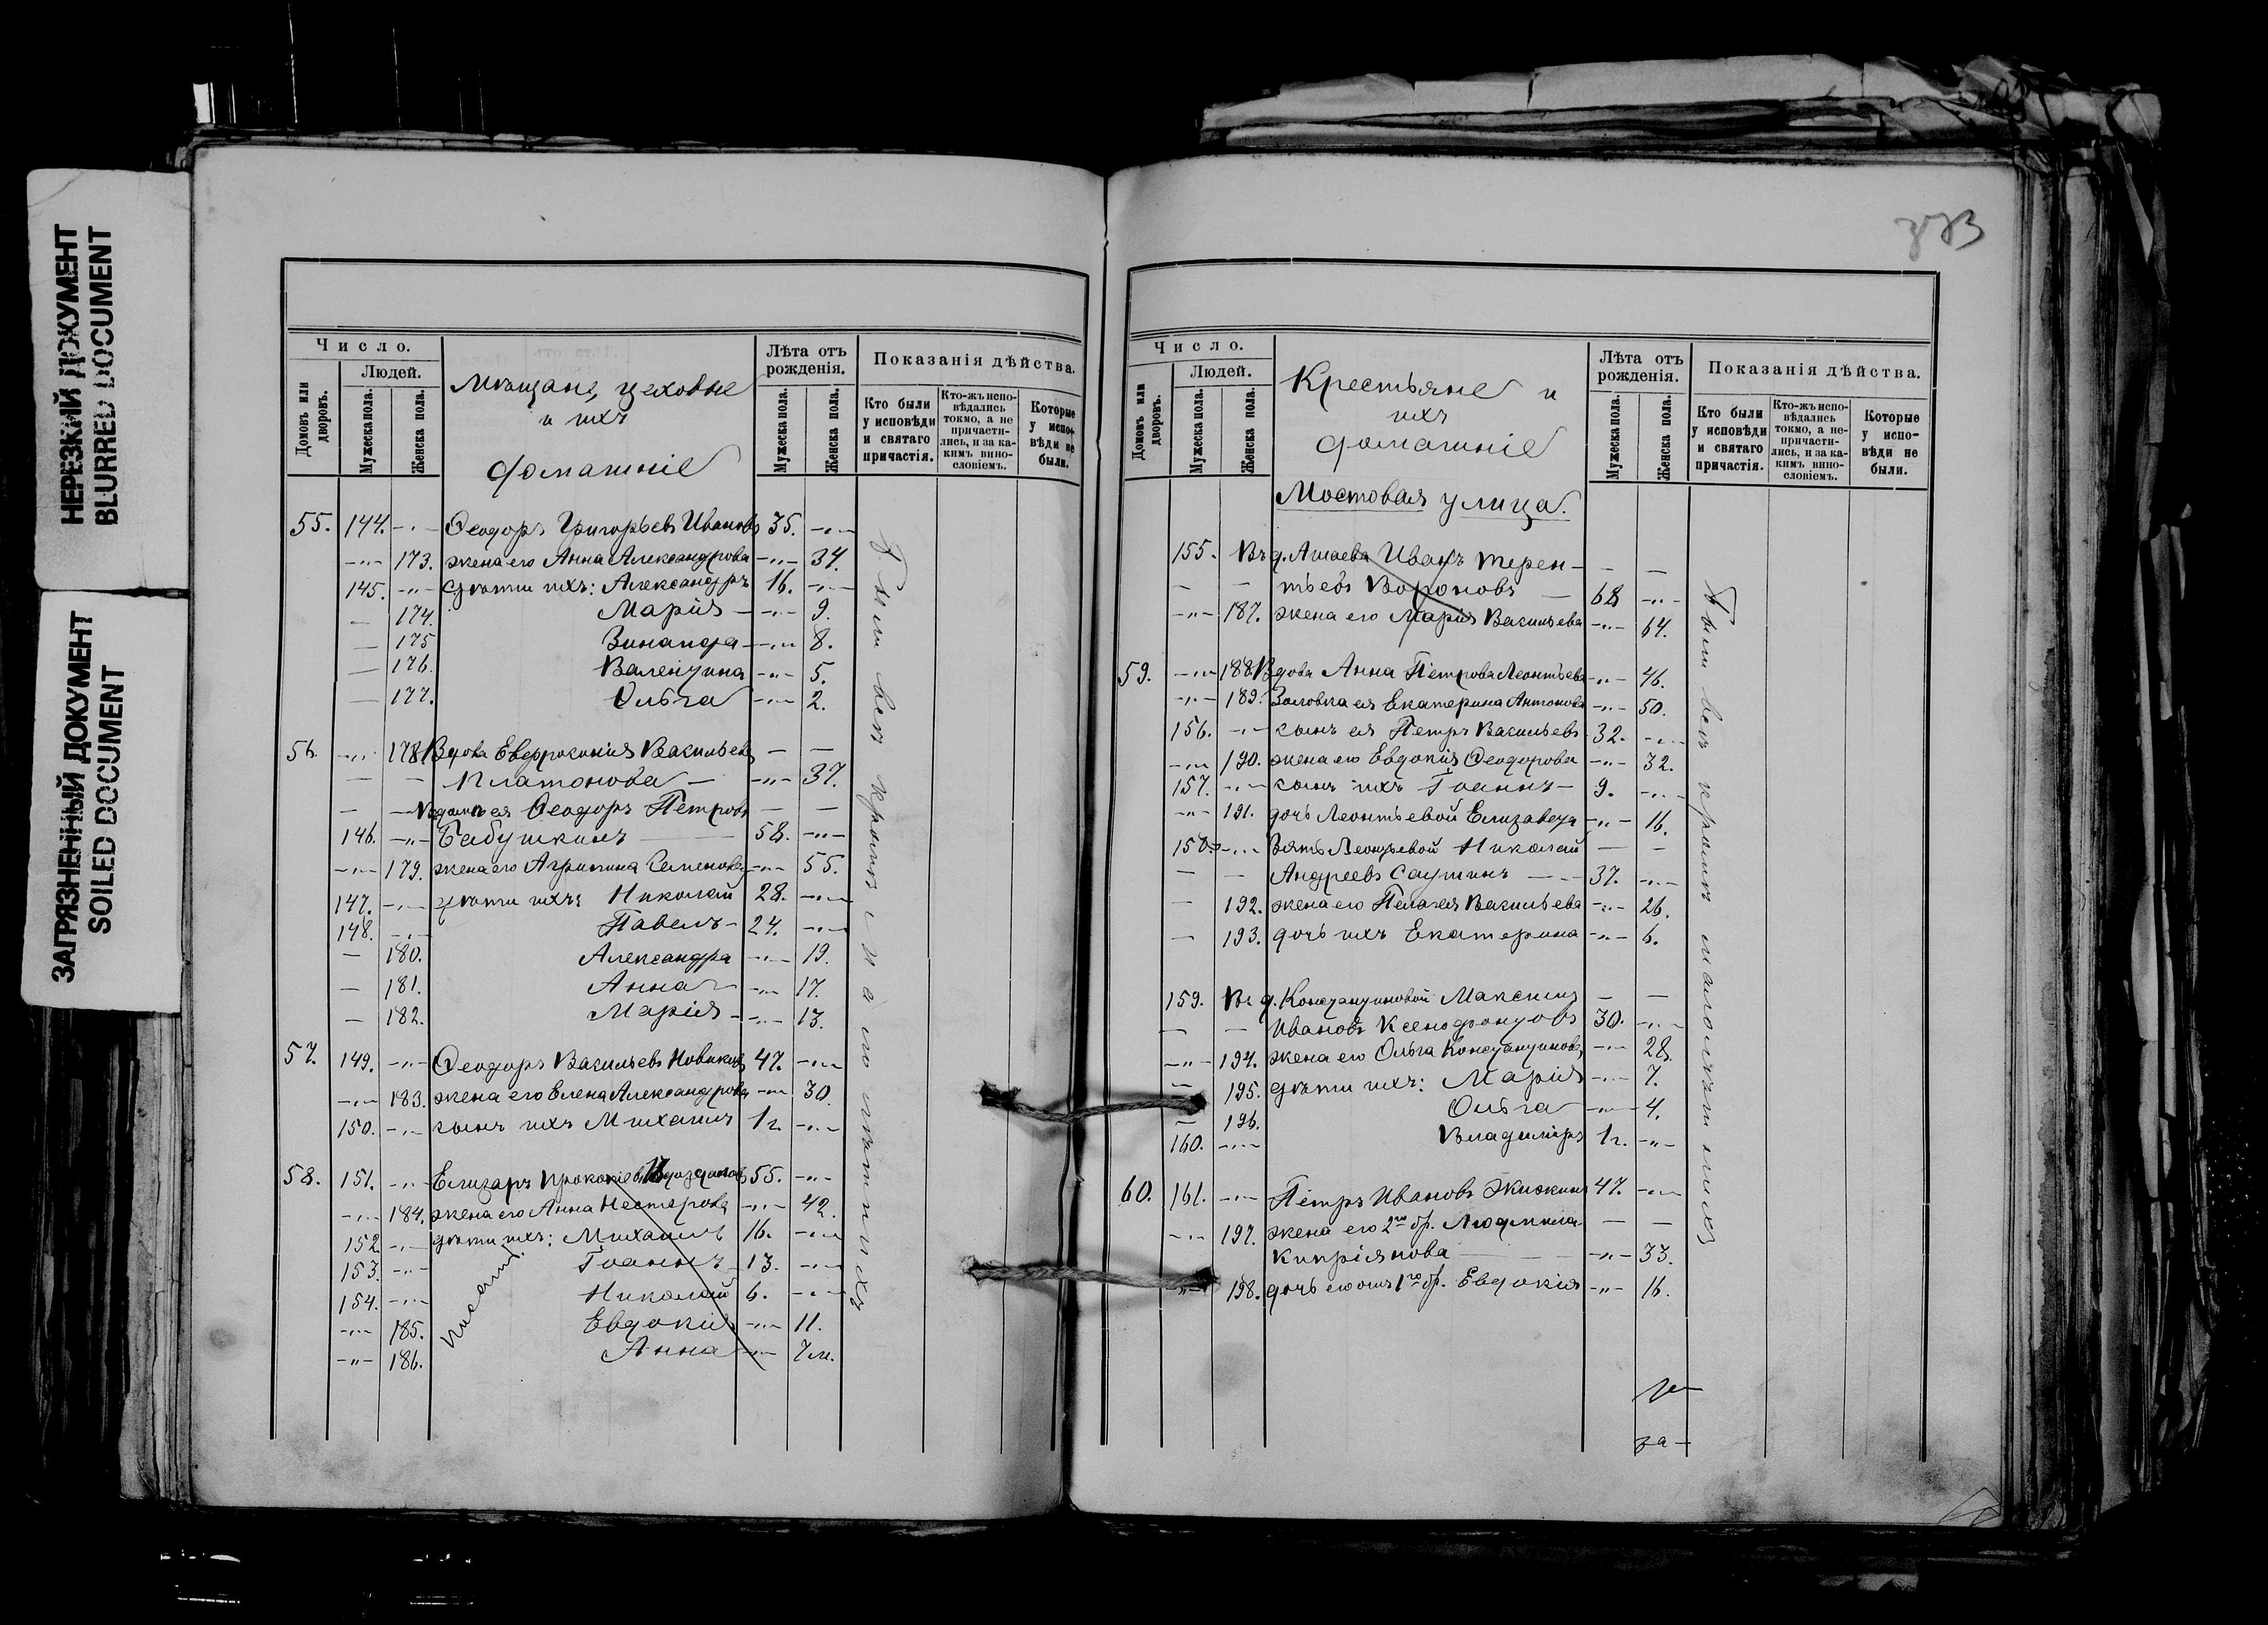 НЕРЕЗКИЙ ДОКУМЕНТ
BLURRED DOCUMENT
ЗАГРЯЗНЕННЫЙ ДОКУМЕНТ
SOILED DOCUMENT
Число.
Людей.
Домовъ или дворовъ.
Мужеска пола.
Женска пола.
Мѣщане, цеховые
и ихъ
домашніе
Лѣта отъ рожденія.
Мужеска пола.
Женска пола.
Показанія дѣйства.
Кто были у исповѣди и святаго причастія.
Кто-жъ исповѣдались токмо, а не причастились, и за какимъ винословіемъ.
Которые у исповѣди не были.
55. 144. -"- Ѳеодоръ Григорьевъ Ивановъ 35. -"-
-"- 173. жена его Анна Александрова -"- 34.
145. -"- дѣти ихъ: Александръ 16. -"-
— 174. Марія -"- 9.
— 175 Зинаида -"- 8.
— 176. Валентина -"- 5.
— 177. Ольга -"- 2.
56. -"- 178. Вдова Евфросинія Васильева — —
— — Платонова — -"- 37.
— — ея Ѳеодоръ Петровъ — —
146. -"- Бабушкинъ 58. -"-
-"- 179. жена его Агрипина Семенова -"- 55.
147. -"- дѣти ихъ: Николай 28. -"-
148. -"- Павелъ 24. -"-
— 180. Александра -"- 19.
— 181. Анна -"- 17.
— 182. Марія -"- 13.
57. 149. -"- Ѳеодоръ Васильевъ Новиковъ 47. -"-
-"- 183. жена его Елена Александрова -"- 30.
150. -"- сынъ ихъ Михаилъ 1 г. -"-
58. 151. -"- Елизаръ Прокопіевъ 55. -"-
-"- 184. жена его Анна Нестерова -"- 42.
152 -"- дѣти ихъ: Михаилъ 16. -"-
153. -"- Іоаннъ 13. -"-
154. -"- Николай 6. -"-
-"- 185. Евдокія -"- 11.
-"- 186. Анна -"- 7 м.
Были всѣ кромѣ малолѣтнихъ
Число.
Людей.
Домовъ или дворовъ.
Мужеска пола.
Женска пола.
Крестьяне и
ихъ
домашніе
Лѣта отъ рожденія.
Мужеска пола.
Женска пола.
Показанія дѣйства.
Кто были у исповѣди и святаго причастія.
Кто-жъ исповѣдались токмо, а не причастились, и за какимъ винословіемъ.
Которые у исповѣди не были.
Мостовая улица.
155. Въ д. Иванъ Терен- — —
— — тьевъ Вороновъ — 68 -"-
-"- 187. жена его Марія Васильева -"- 64.
59. -"- 188. Вдова Анна Петрова Леонтьева -"- 46.
-"- 189. Золовка ея Екатерина Антонова -"- 50.
156. -"- сынъ ея Петръ Васильевъ 32. -"-
-"- 190. жена его Евдокія Ѳеодорова -"- 32.
157. -"- сынъ ихъ Іоаннъ — 9. -"-
-"- 191. дочь Леонтьевой Елизавета -"- 16.
158. -"- Зять Леонтьевой Николай — —
— — Андреевъ 37. -"-
— 192. жена его Пелагея Васильева -"- 26.
— 193. дочь ихъ Екатерина -"- 6.
159. Въ д. Константиновой Максимъ — —
— — Ивановъ Ксенофонтовъ 30. -"-
-"- 194. жена его Ольга Константинова -"- 28.
— 195. дѣти ихъ: Марія -"- 7.
— 196. Ольга -"- 4.
160. -"- Владиміръ 1 г. -"-
60. 161. -"- Петръ Ивановъ Жижинъ 47. -"-
-"- 197. жена его 2го бр. Людмила — —
Кипріянова -"- 33.
-"- 198. дочь его отъ 1го бр. Евдокія -"- 16.
Были всѣ кромѣ малолѣтнихъ